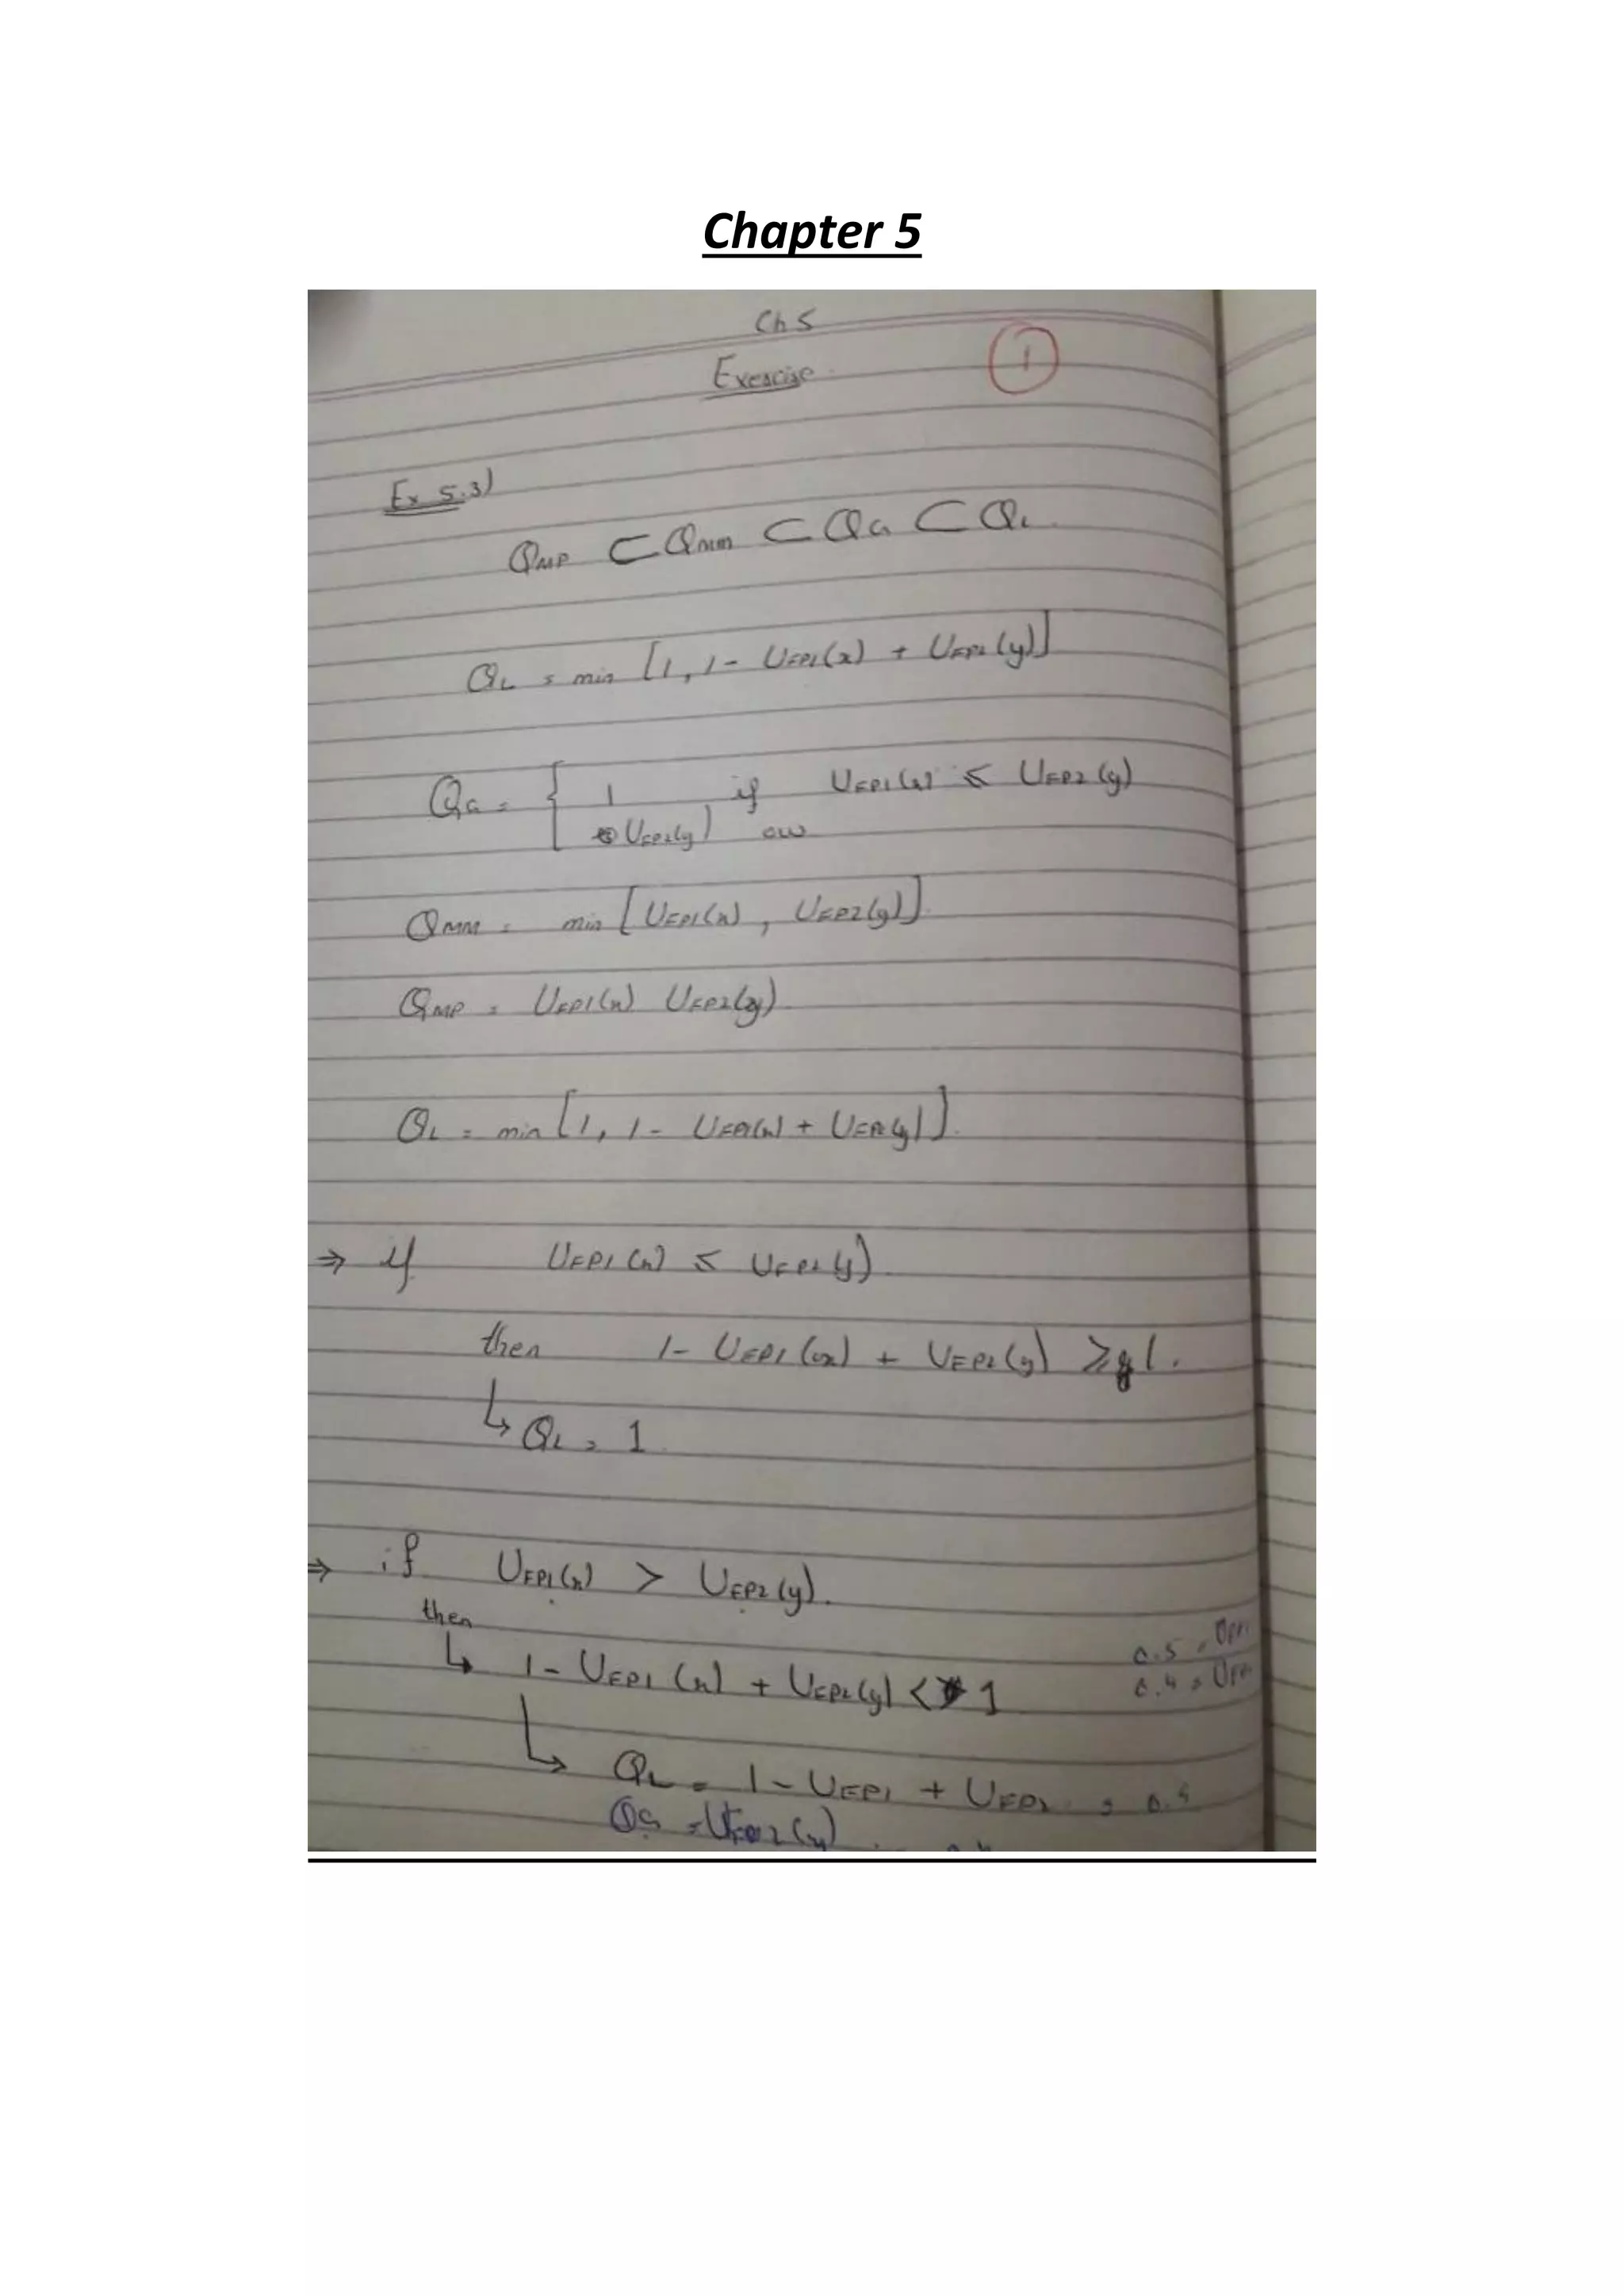 Chapter 5
Ch 5
Exercise
1
Ex 5.3)
QMP ⊂ QMM ⊂ QG ⊂ QL
QL = min [1, 1 - UFP1(x) + UFP2(y)]
QG = { 1 if UFP1(x) ≤ UFP2(y)
UFP2(y) ow
QMM = min [UFP1(x), UFP2(y)]
QMP = UFP1(x) UFP2(y)
QL = min [1, 1 - UFP1(x) + UFP2(y)]
⇒ if UFP1(x) ≤ UFP2(y)
then 1 - UFP1(x) + UFP2(y) ≥ 1.
↳ QL = 1
⇒ if UFP1(x) > UFP2(y).
then
↳ 1 - UFP1(x) + UFP2(y) < 1
0.5 =
0.4 =
↳ QL = 1 - UFP1 + UFP2 =
QG = UFP2(y)